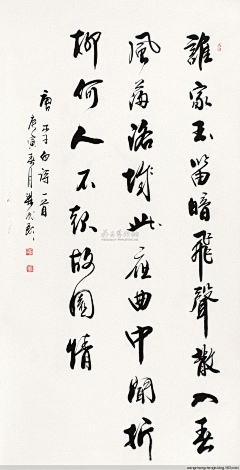 誰家玉笛暗飛聲散入春
風滿洛城此夜曲中聞折
柳何人不起故園情
唐 白詩一首
庚寅春月